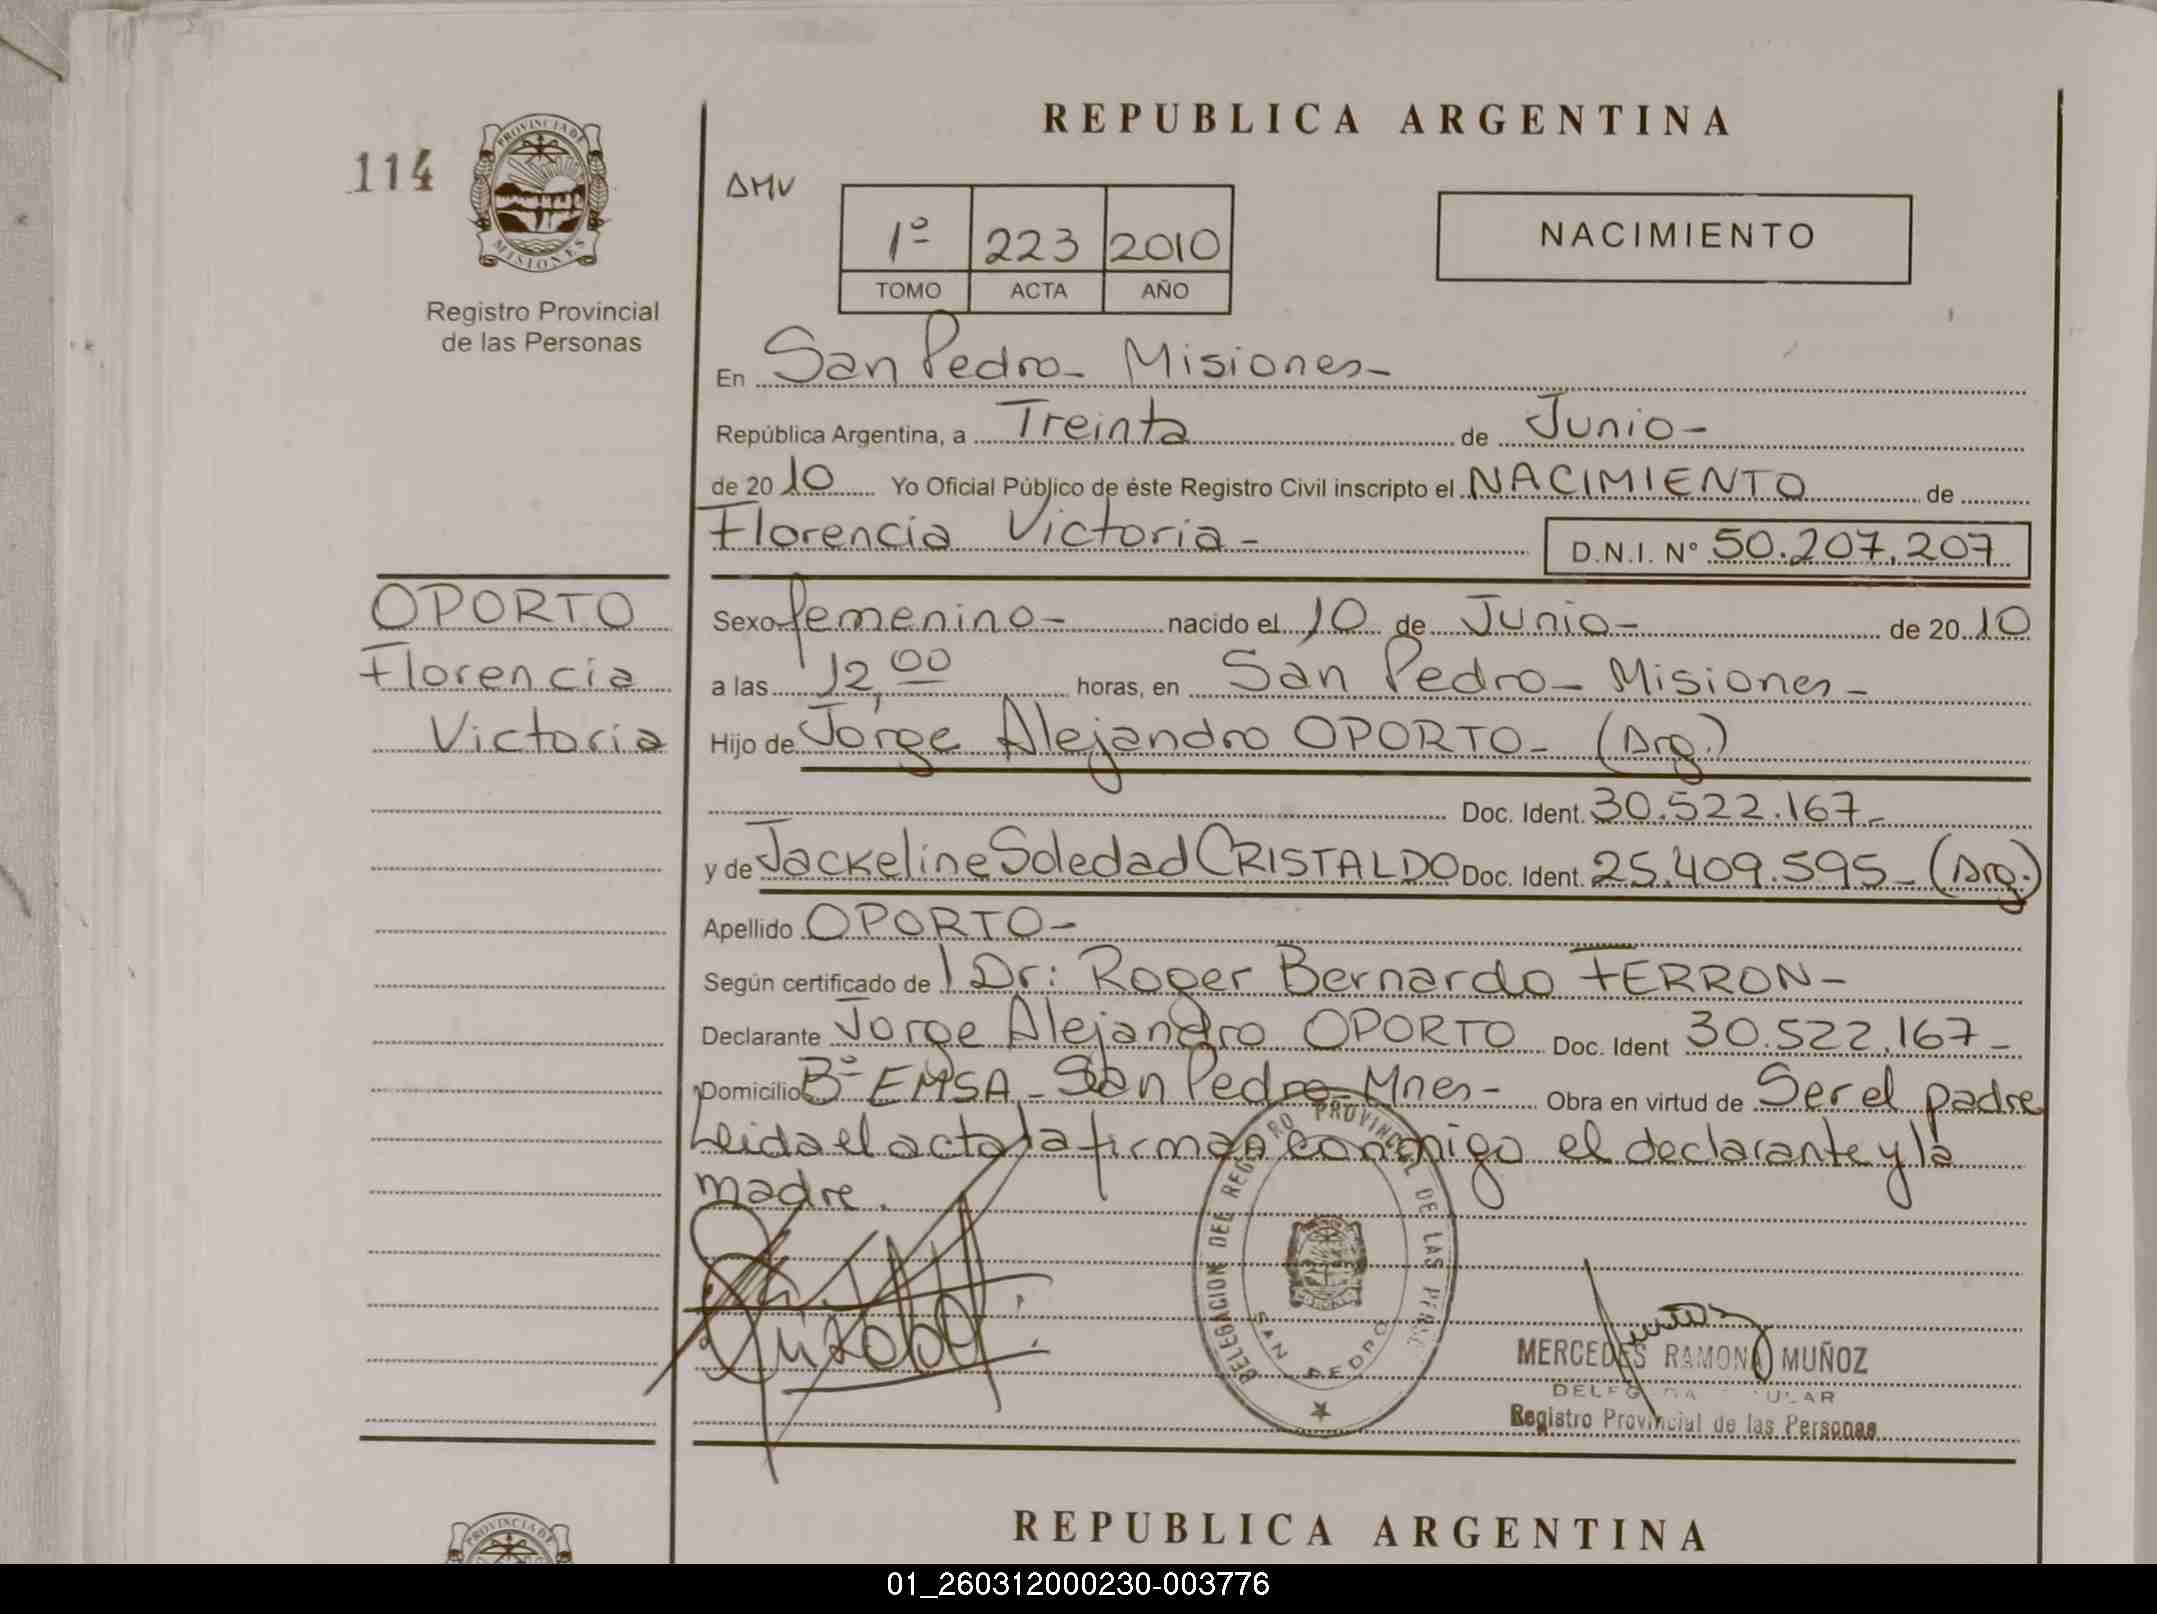 REPUBLICA ARGENTINA
114
PROVINCIA DE
MISIONES
Registro Provincial
de las Personas
AMV
1º 223 2010
TOMO ACTA AÑO
NACIMIENTO
En San Pedro - Misiones -
República Argentina, a Treinta de Junio -
de 2010 Yo Oficial Público de éste Registro Civil inscripto el NACIMIENTO de
Florencia Victoria -
D.N.I. N° 50.207.207
OPORTO
Florencia
Victoria
Sexo femenino - nacido el 10 de Junio - de 2010
a las 12,00 horas, en San Pedro - Misiones -
Hijo de Jorge Alejandro OPORTO - (Arg.)
Doc. Ident. 30.522.167 -
y de Jackeline Soledad CRISTALDO Doc. Ident. 25.409.595 - (Arg.)
Apellido OPORTO -
Según certificado de l Dr: Roger Bernardo FERRON -
Declarante Jorge Alejandro OPORTO Doc. Ident 30.522.167 -
Domicilio Bº EMSA - San Pedro - Mnes - Obra en virtud de Ser el padre
Leida el acta la firman conmigo el declarante y la
madre.
DELEGACION DEL REGISTRO PROVINCIAL DE LAS PERS
SAN PEDRO
MERCEDES RAMONA MUÑOZ
Registro Provincial de las Personas
PROVINCIA DE
REPUBLICA ARGENTINA
01_260312000230-003776